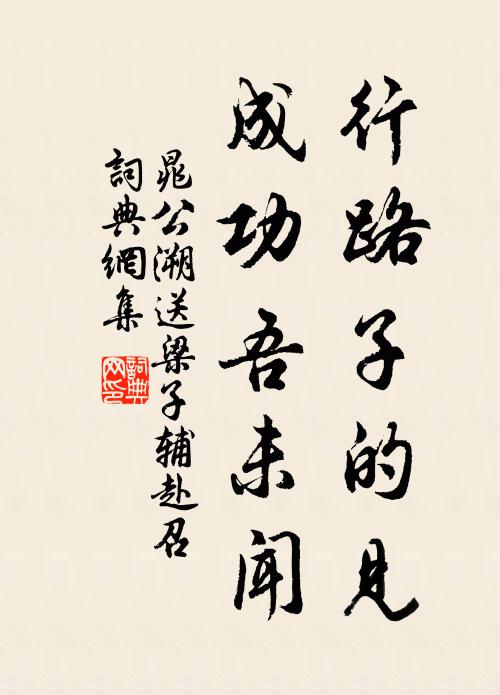 行路子的見
成功吾未聞
晁公溯送梁子辅赴召
詞典網集
詞典網印